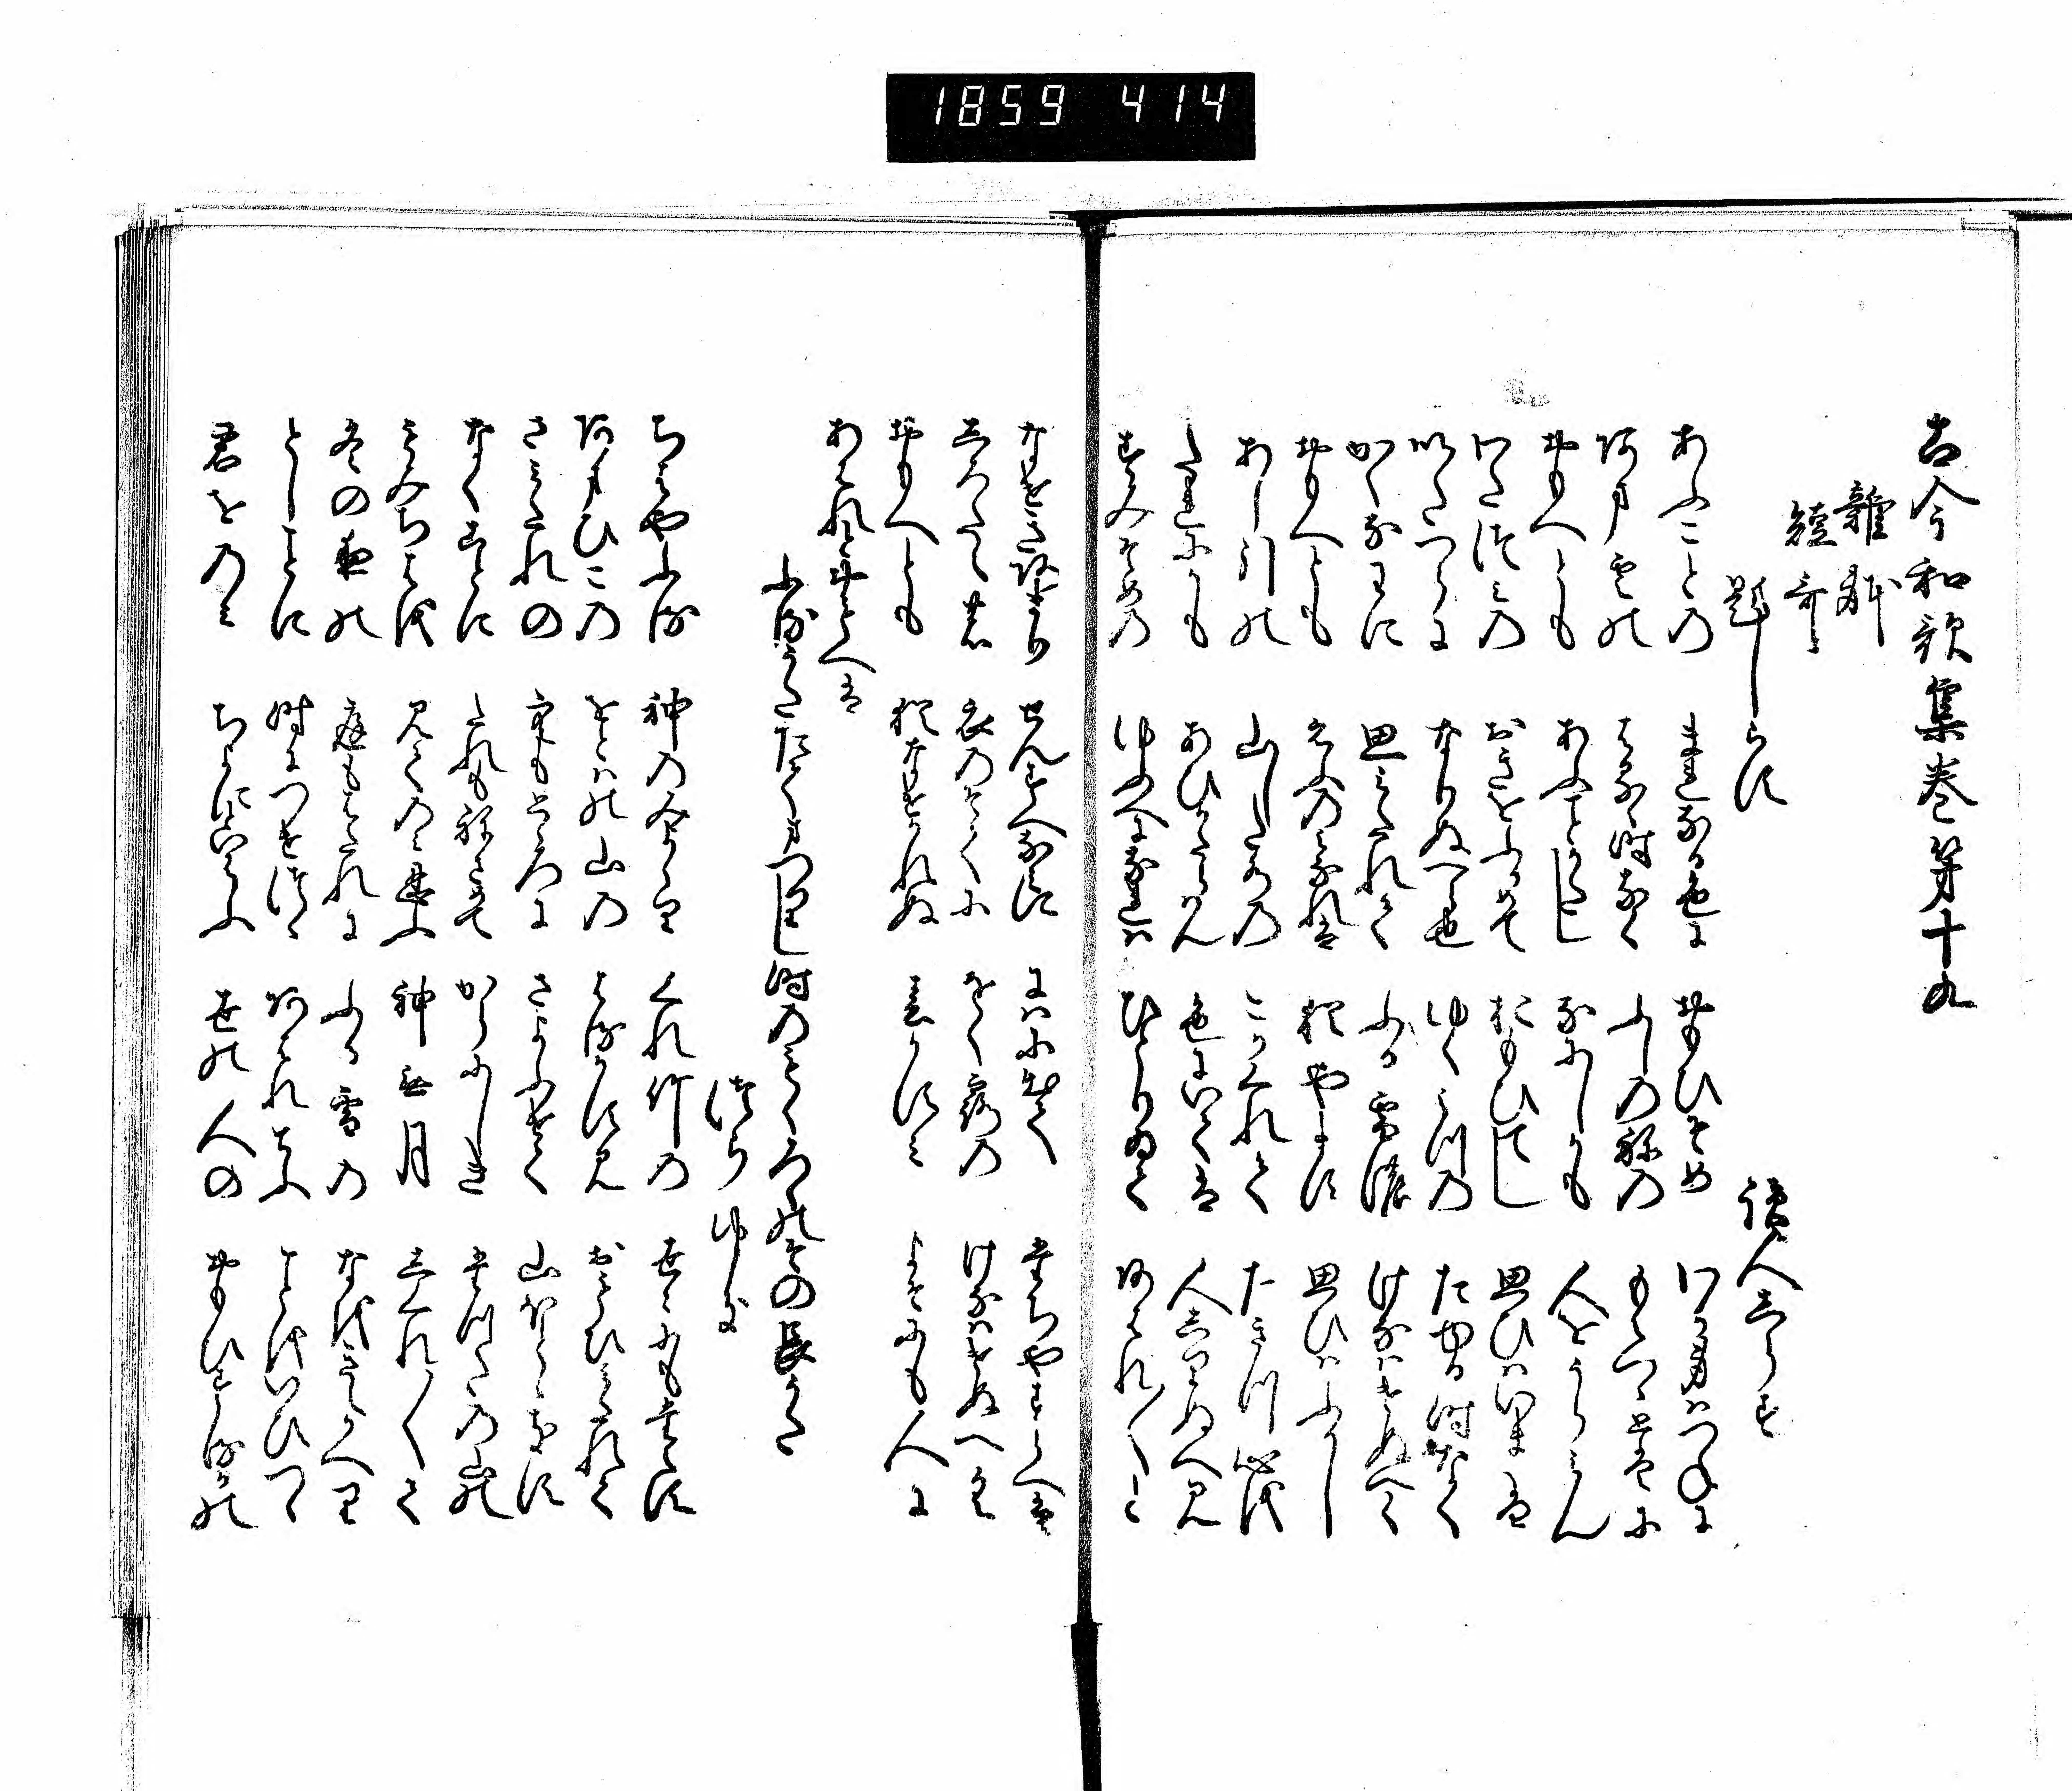 1859 414
古今和歌集巻第十九
雑躰
短哥
題しらす
読人しらす
あふことの まれなる色に おもひそめ わか身はつねに
あまくもの はるゝ時なく ふしのねの もえつゝとはに
おもへとも あふことかたし なにしかも 人をうらみん
わたつみの おきをふかめて おもひてし 思ひはいまは
いたつらに なりぬへら也 ゆく水の たゆる時なく
かくなわに 思みたれて ふる雪の けなはけぬへく
おもへとも えふの身なれは 猶やます 思ひはふかし
あし引の 山した水の こかくれて たきつ心を
たれにかも あひかたらはん 色にいては 人しりぬへみ
すみそめの ゆふへになれは ひとりゐて あはれ〳〵と
なけきあまり せんすへなみに にはにいてゝ たちやすらへは
しろたへの 衣のそてに をく露の けなはけぬへく
おもへとも 猶なけかれぬ 春かすみ よそにも人に
あはんとおもへは
ふるうたたてまつりし時のもくろくのその長うた
つらゆき
ちはやふる 神のみよゝり くれ竹の 世ゝにもたえす
あまひこの をとはの山の はるかすみ おもひみたれて
さみたれの そらもとゝろに さよふけて 山ほとゝきす
なくことに たれもねさめて からにしき たつたの山の
もみちはを 見てのみしのふ 神無月 しくれ〳〵て
冬の夜の 庭もはたれに ふる雪の なをきえかへり
としことに 時につけつゝ あはれてふ ことをいひつゝ
君をのみ ちよにといはふ 世の人の おもひするかの